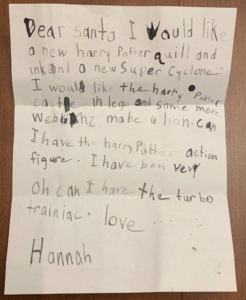 Dear santa I Would like
a new harry Potter quill and
ink and a new Super Cyclone.
I would like the harry Potter
castle in lego and some more
make a lion. Can
I have the harry Potter action
figure. I have ben very
Oh can I have the turbo
trainiac. love ......
Hannah